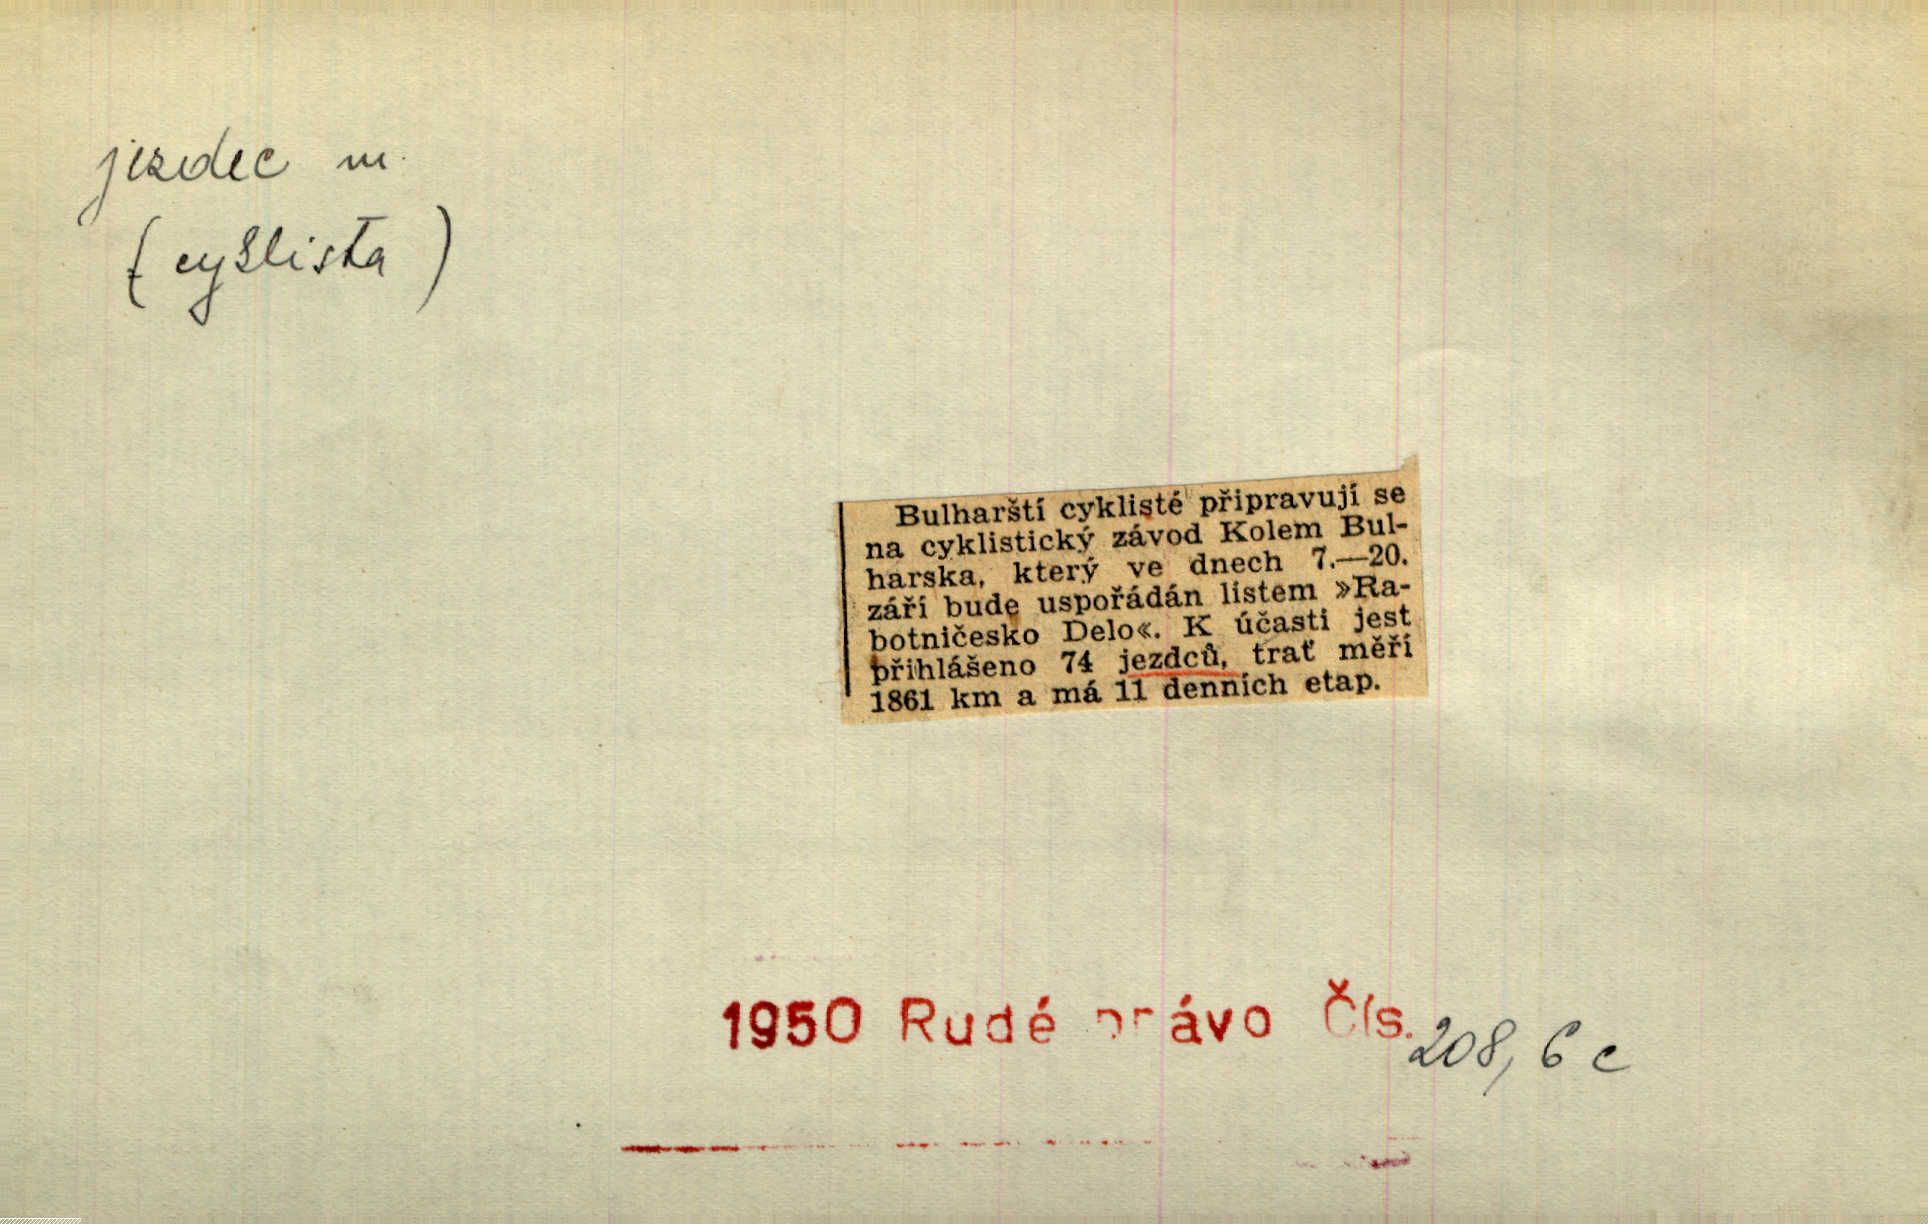 jezdec m.
(cyklista)
Bulharští cyklisté připravují se
na cyklistický závod Kolem Bul-
harska, který ve dnech 7.—20.
září bude uspořádán listem »Ra-
botničesko Delo«. K účasti jest
přihlášeno 74 jezdců, trať měří
1861 km a má 11 denních etap.
1950 Rudé právo Čís. 208, 6 c